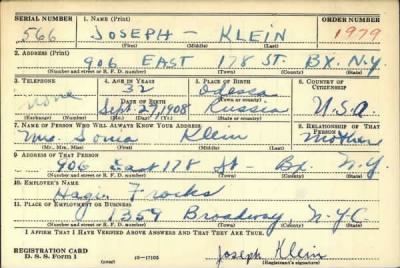 SERIAL NUMBER 1. NAME (Print) ORDER NUMBER
566 JOSEPH - KLEIN 1979
(First) (Middle) (Last)
2. ADDRESS (Print)
906 EAST 178 ST. BX. N.Y.
(Number and street or R. F. D. number) (Town) (County) (State)
3. TELEPHONE 4. AGE IN YEARS 5. PLACE OF BIRTH 6. COUNTRY OF CITIZENSHIP
none 32 Odessa
DATE OF BIRTH (Town or county)
Sept. 27, 1908 Russia U.S.A
(Exchange) (Number) (Mo.) (Day) (Yr.) (State or country)
7. NAME OF PERSON WHO WILL ALWAYS KNOW YOUR ADDRESS 8. RELATIONSHIP OF THAT PERSON
Mrs. Sonia Klein Mother
(Mr., Mrs., Miss) (First) (Middle) (Last)
9. ADDRESS OF THAT PERSON
906 East 178 St - Bx. N.Y.
(Number and street or R. F. D. number) (Town) (County) (State)
10. EMPLOYER'S NAME
Frocks
11. PLACE OF EMPLOYMENT OR BUSINESS
1359 Broadway, N-Y-C
(Number and street or R. F. D. number) (Town) (County) (State)
I AFFIRM THAT I HAVE VERIFIED ABOVE ANSWERS AND THAT THEY ARE TRUE.
REGISTRATION CARD
D. S. S. Form 1 (over) 16-17105 Joseph Klein
(Registrant's signature)